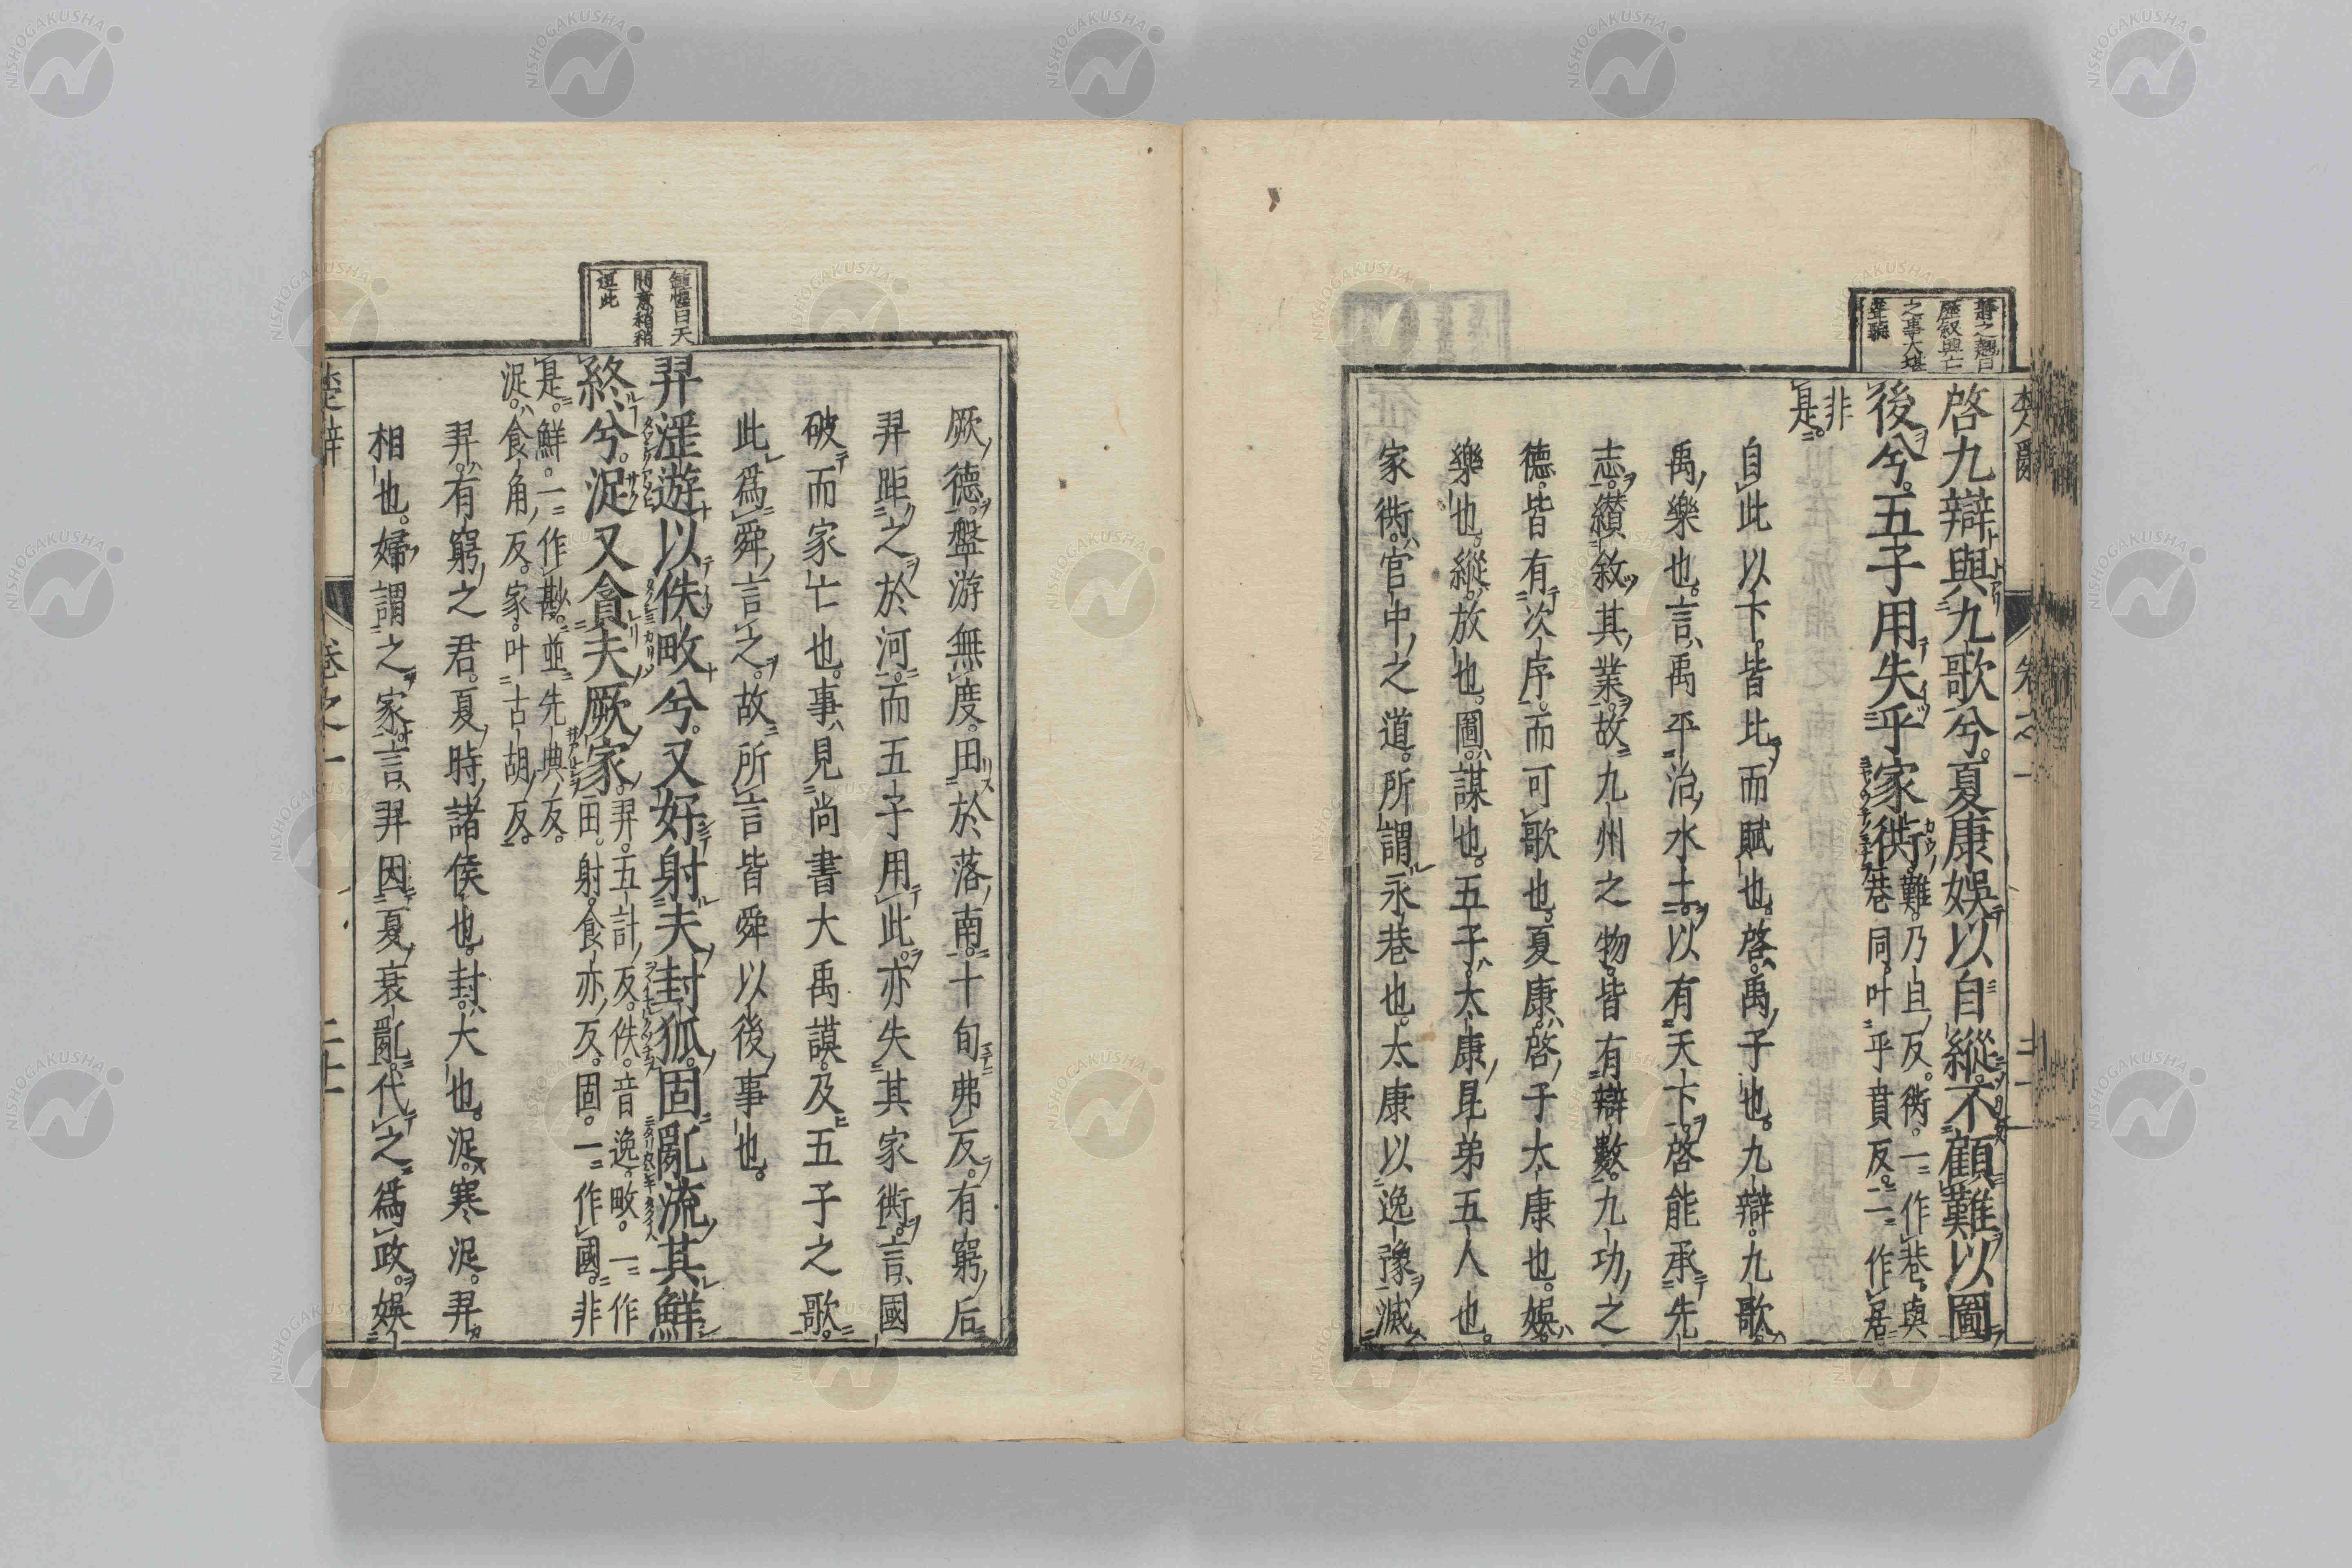 蔣之翹曰
歷叙興亡
之事大堪
啓九辯與九歌兮。夏康娛以自縱。不顧難以圖
後兮。五子用失乎家衖。
難。乃旦反。衖。一作巷。與
巷同。叶乎貢反。一作居
非
是。
自此以下。皆比而賦也。啓。禹子也。九辯。九歌。
禹樂也。言禹平治水土。以有天下。啓能承先
志。纘敘其業。故九州之物。皆有辯數。九功之
德。皆有次序。而可歌也。夏康。啓子太康也。娛。
樂也。縱。放也。圖。謀也。五子。太康昆弟五人也。
家衖。官中之道。所謂永巷也。太康以逸豫滅
厥德。盤游無度。田於落南。十旬弗反。有窮后
羿距之於河。而五子用此亦失其家衖。言國
破而家亡也。事見尚書大禹謨。及五子之歌。
此爲舜言之。故所言皆舜以後事也。
鍾惺曰天
問意稍稍
逗此
羿淫遊以佚畋兮。又好射夫封狐。固亂流其鮮
終兮。浞又貪夫厥家。
羿。五計反。佚。音逸。畋。一作
田。射。食亦反。固。一作國。非
是。鮮。一作尠。並先典反。
浞。食角反。家。叶古胡反。
羿。有窮之君。夏時諸侯也。封。大也。浞。寒浞。羿
相也。婦謂之家。言羿因夏衰亂。代之爲政。娛
楚辭
卷之一